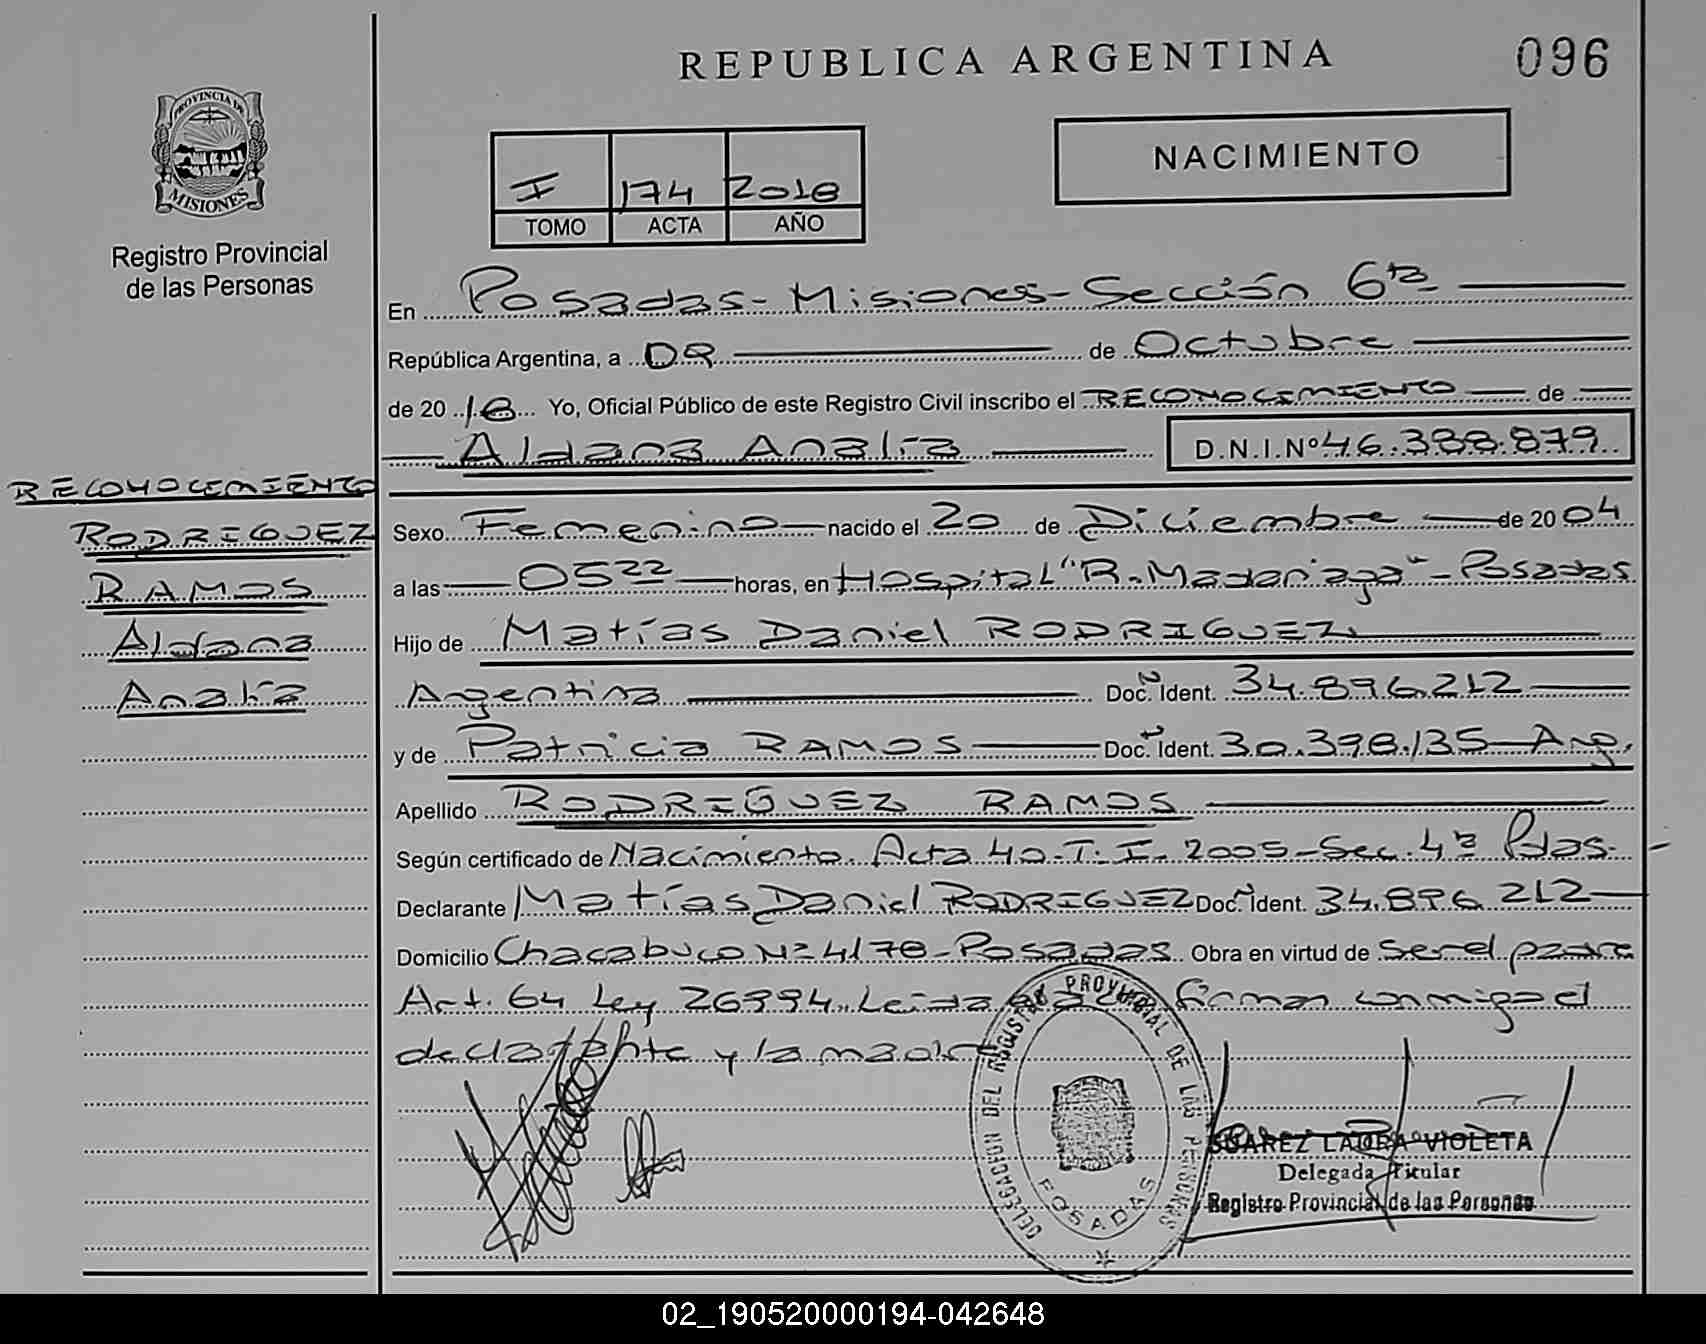 REPUBLICA ARGENTINA
096
PROVINCIA DE
MISIONES
Registro Provincial
de las Personas
NACIMIENTO
I 174 2018
TOMO ACTA AÑO
En Posadas - Misiones - Sección 6ta
República Argentina, a 09 de Octubre
de 20 18 Yo, Oficial Público de este Registro Civil inscribo el RECONOCIMIENTO de
Aldana Analía D.N.I.Nº 46.388.879
RECONOCIMIENTO
RODRIGUEZ
RAMOS
Aldana
Analía
Sexo Femenino nacido el 20 de Diciembre de 20 04
a las 05 22 horas, en Hospital "R. Madariaga" - Posadas
Hijo de Matías Daniel RODRIGUEZ
Argentina Doc. Ident. 34.896.212
y de Patricia RAMOS Doc. Ident. 30.398.135 - Arg.
Apellido RODRIGUEZ RAMOS
Según certificado de Nacimiento. Acta 40. T. I. 2005 - Sec. 4ª Pdas.
Declarante Matías Daniel RODRIGUEZ Doc. Ident. 34.896.212
Domicilio Chacabuco Nº 4178 - Posadas. Obra en virtud de ser el padre
Art. 64 Ley 26994. Leida el acta firman conmigo el
declarante y la madre
DELEGACION DEL REGISTRO PROVINCIAL DE LAS PERSONAS
POSADAS
SUAREZ LAURA VIOLETA
Delegada Titular
Registro Provincial de las Personas
02_190520000194-042648